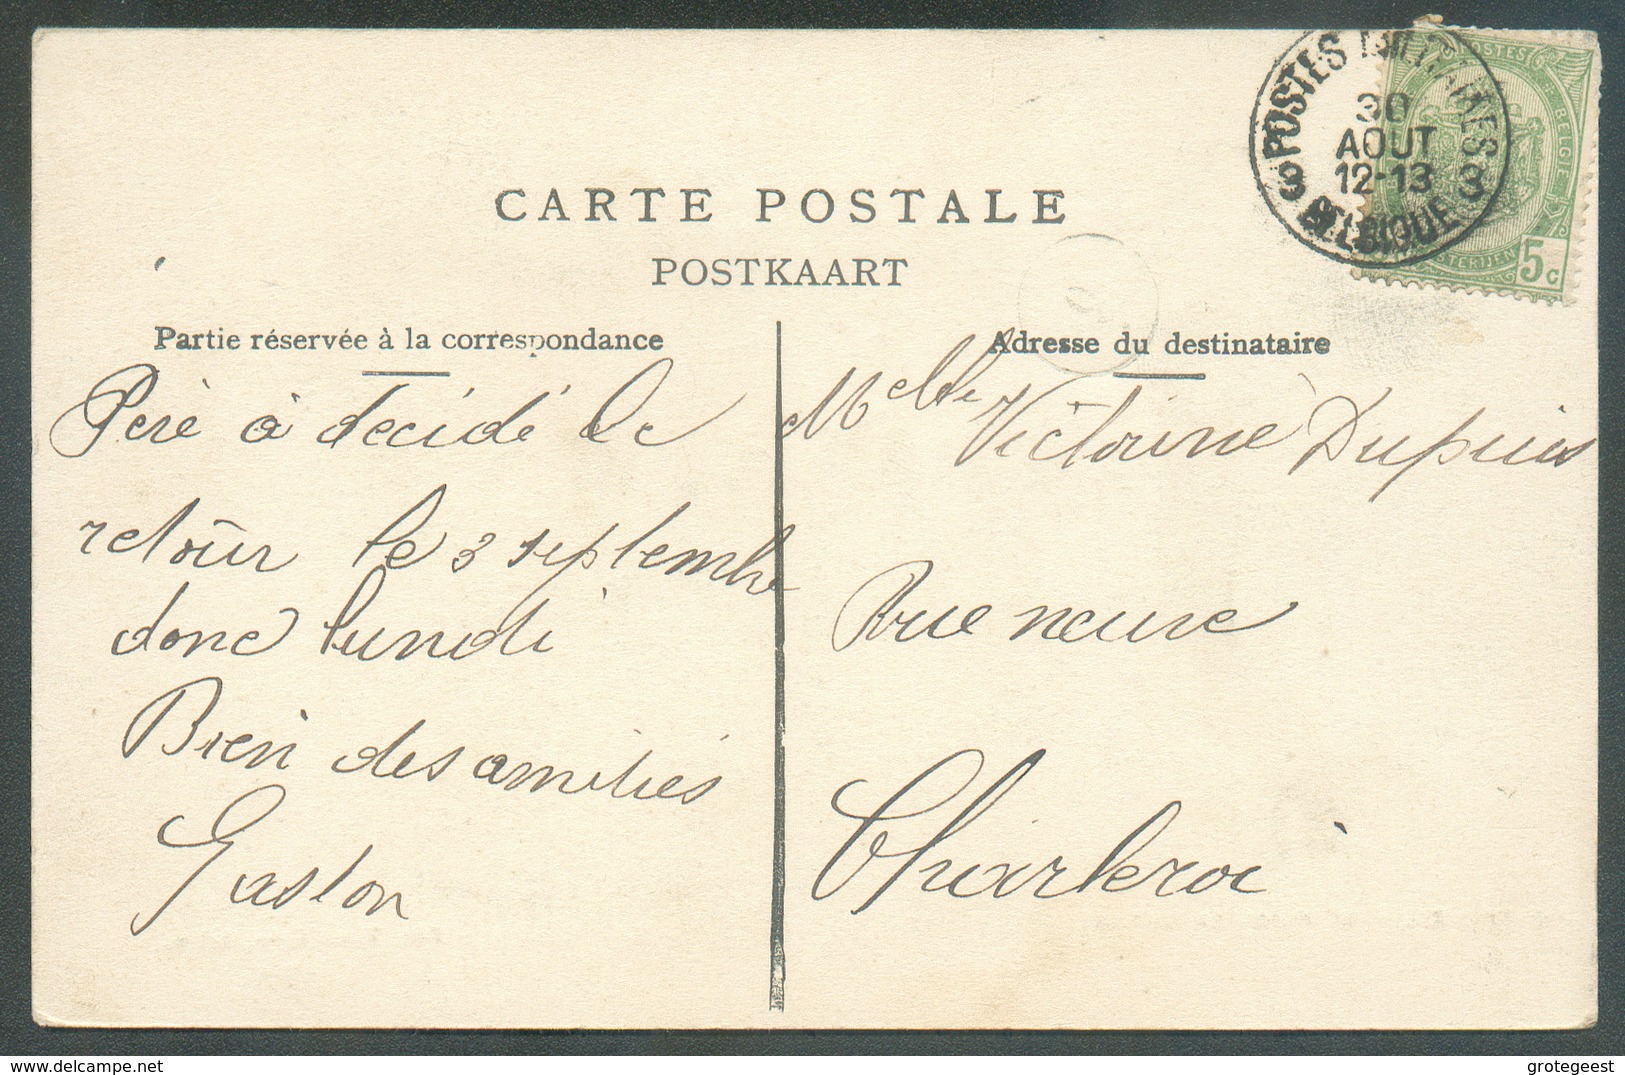 CARTE POSTALE
POSTKAART
Partie réservée à la correspondance
Adresse du destinataire
POSTES MILITAIRES
30
AOUT
12-13
3 3
BELGIQUE
POSTES
BELGIE
5c
Père à decidé le
retour le 3 septembre
donc lundi
Bien des amitiés
Gaston
Melle Victorine Dupuis
Rue neuve
Charleroi
delcampe.net
grotegeest